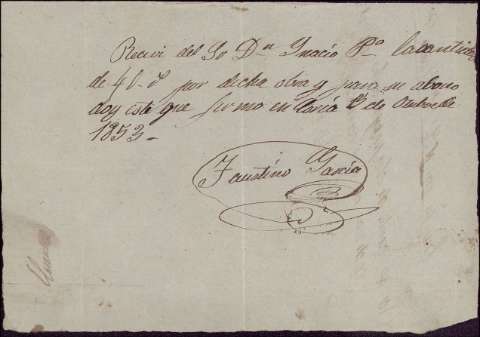 Recivi del Sr Dn Ynacio Po la cantidad
de 46 rs por dicha obra y para su abono
doy este que firmo en Coria de Octubre de
1853
Faustino Garcia